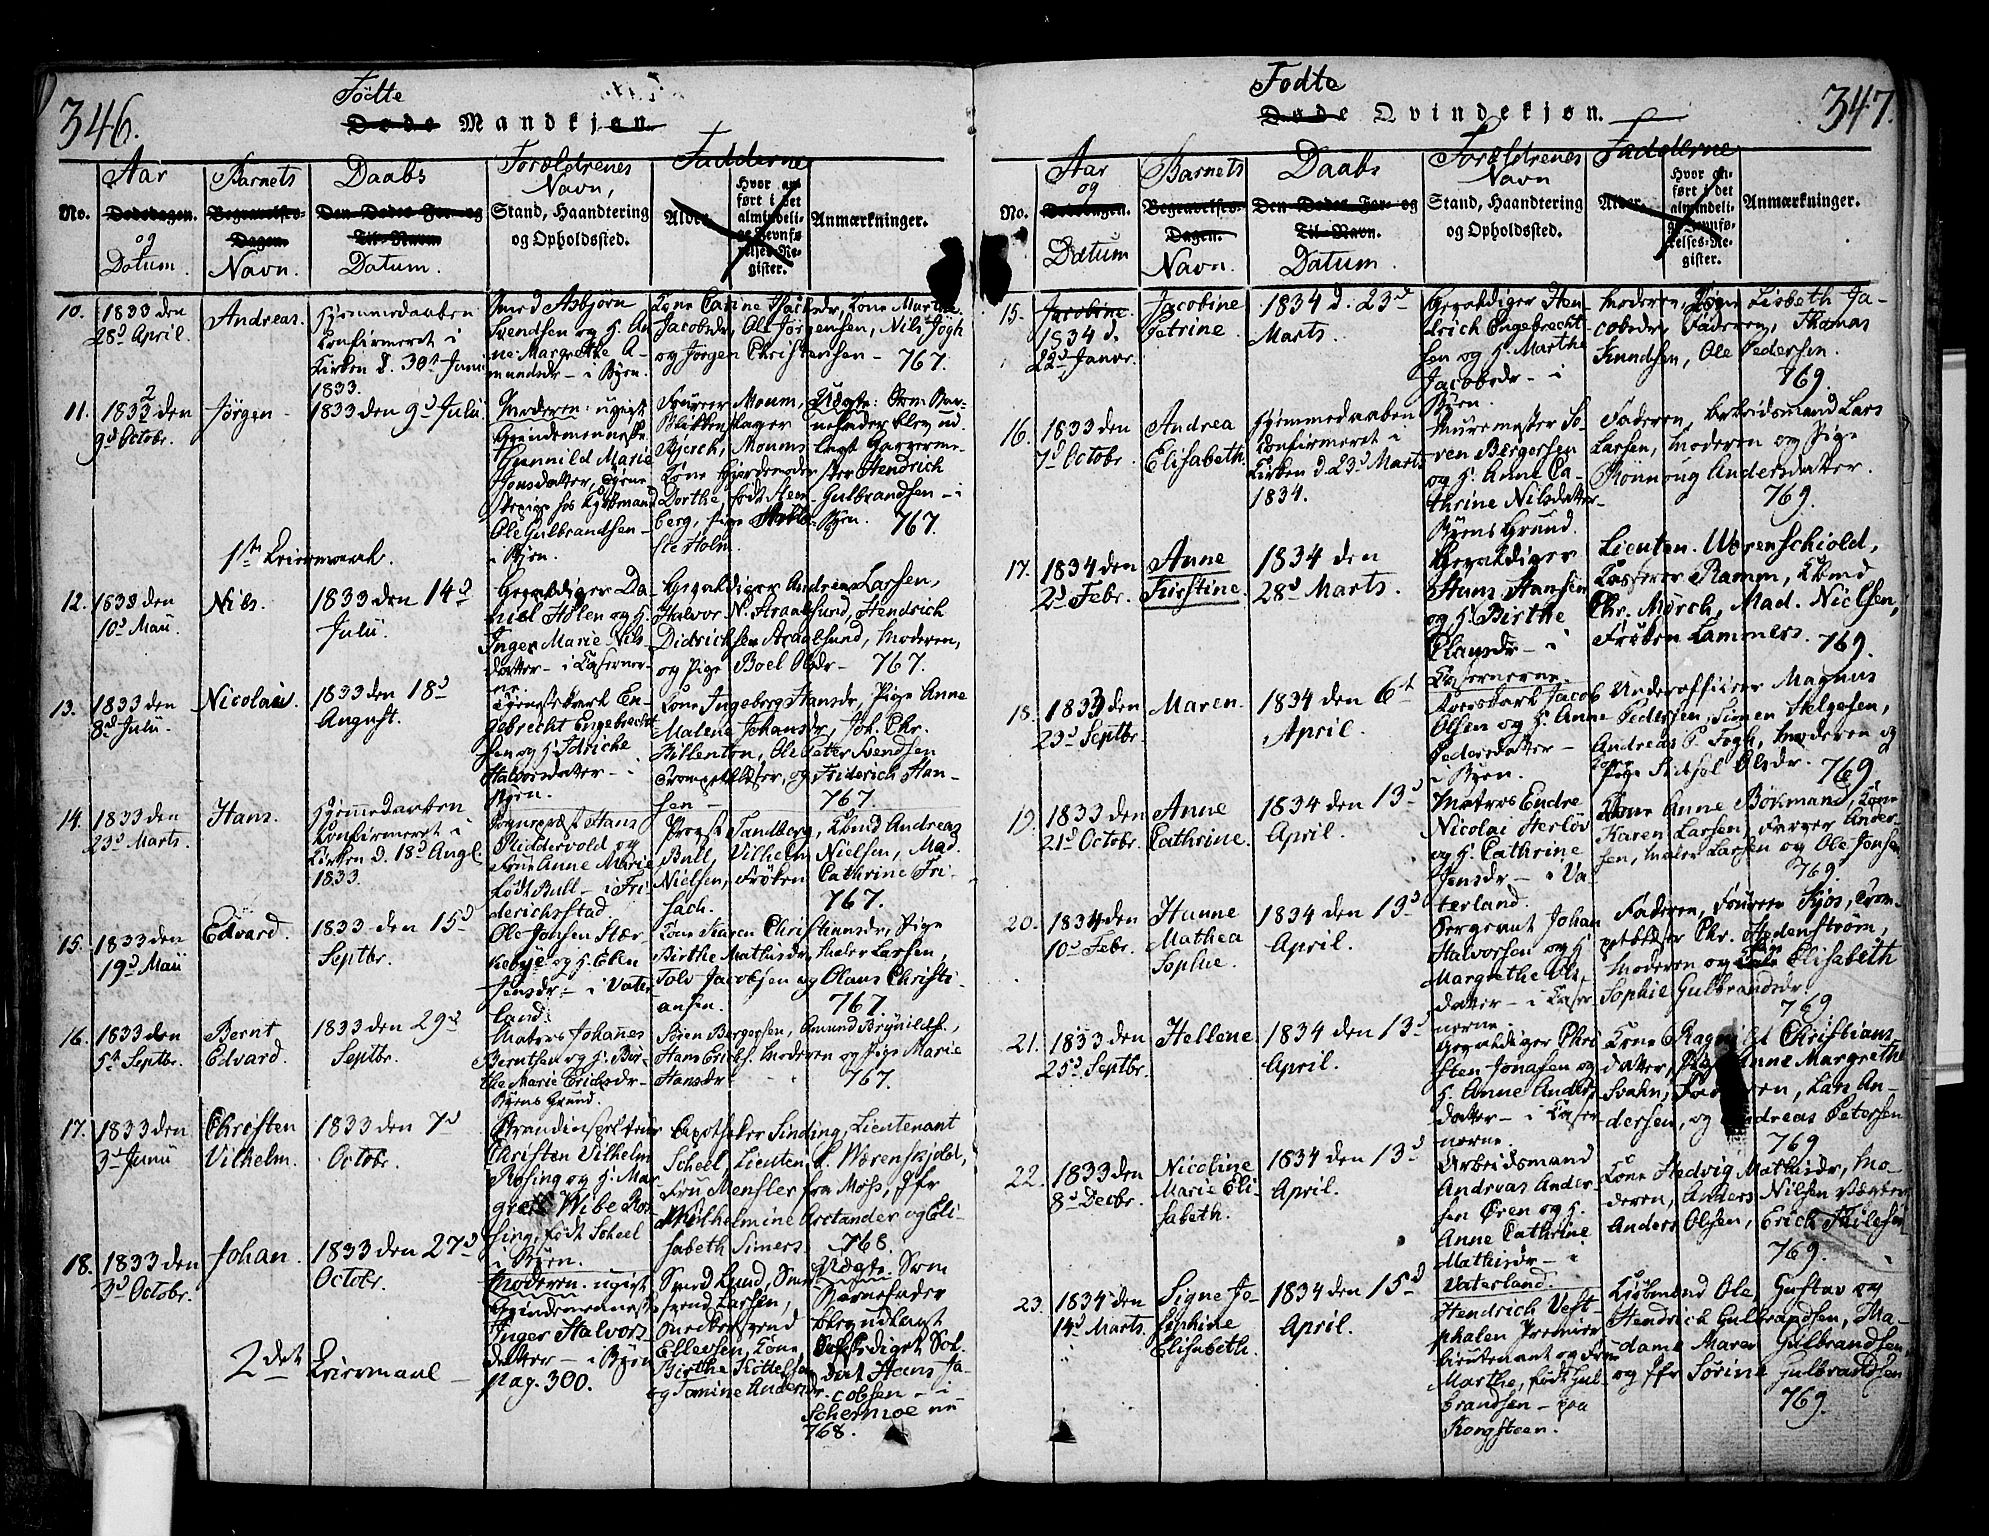 346.
Födte
Døde Mandkjøn.
No.
Aar
Dødsdagen.
og
Datum.
Barnets
Begravelses-
Dagen.
Navn.
Daabs
Den Dødes For- og
Til-Navn.
Datum.
Forældrenes
Navn,
Stand, Haandtering
og Opholdssted.
Fadderne
Alder.
Hvor an-
ført i det
almindeli-
ge Jevnfø-
relses-Re-
gister.
Anmærkninger.
10.
1833 den
28d April.
Andreas.
Hjemmedaaben
Confirmeret i
Kirken d. 30t Juni
1833.
Smed Asbjörn
Svendsen og H. An
ne Margrethe A-
mundsdr – i Byen.
Kone Carine Jacobsdr, Kone Marthe
Jacobsdr, Ole Jörgensen, Nils Fogh
og Jörgen Christensen – 767.
11.
1832 den
9d Octobr.
Jörgen –
1833 den 9d Julii
Moderen: ugivt
Qvindemenneske
Gunnild Marie
Hansdatter, tjene
Stepige hos Kjöbmand
Ole Gulbrandsen –
i Byen.
Feurer Moum,
Blikkenslager
Bjerch, Moums
Kone Gjordemoder
Dorthe, født Steen
berg, Pige
Holm.
Udgte: Som Bar-
nefader blev ud
lagt Garverme-
ster Hendrich
Gulbrandsen – i
Byen. 767.
1ste Leiermaal.
12.
1833 den
10d Maii.
Nils.
1833 den 14d
Julii.
Gevaldiger Da-
niel Holen og H.
Inger Marie Nils
datter – i Caserner-
ne.
Gevaldiger Andreas Larsen,
Halvor N. Straalsund, Hendrich
Didrichsen Straalsund, Moderen,
og Pige Boel Olsdr – 767.
13.
1833 den
8d Julii.
Nicolai.
1833 den 18d
August.
Tjenestekarl En-
gebrecht Engebrecht-
sen og H. Idriche
Halvorsdatter – i
Byen.
Kone Ingeborg Hansdr, Pige Anne
Malene Johansdr, Joh. Chr.
Billenton, Ole Peter Svendsen
Trompetblæser, og Friderich Han-
sen – 767.
14.
1833 den
23d Marts.
Hans.
Hjemmedaaben
Confirmeret i
Kirken d. 18d Augl.
1833.
Sognepræst Hans
Riddervold og
Frue Anne Marie
født Bull – i Fri
derichstad.
Provst Tandberg, Kbmd Andreas
Bull, Vilhelm Nielsen, Mad.
Nielsen, Fröken Cathrine Fri-
sach. 767.
15.
1833 den
19d Maii
Edvard.
1833 den 15d
Septbr.
Ole Jensen Stær
kebye og H. Elen
Jensdr – i Vater
land.
Kone Karen Christiansdr, Pige
Birthe Mathisdr, Maler Larsen,
Tolv Jacobsen og Olaus Christi-
ansen. 767.
16.
1833 den
5t Septbr.
Bernt
Edvard.
1833 den 29d
Septbr.
Matros Johannes
Berntsen og H. Bir-
the Marie Ericksdr –
Byens Grund.
Sören Bergersen, Amund Brynildsf.,
Hans Ericks. Moderen og Pige Marie
Hansdr 767.
17.
1833 den
3d Junii
Christen
Vilhelm.
1833 den 7d
Octobr.
Brandinspecteur
Christen Vilhelm
Rosing og H. Mar
grete Wibe Ros
sing, født Scheel
i Byen.
Apotheker Sinding, Lieutenant
Scheel Lieuten. d. Wörenskjold,
Fru Mensler fra Moss, Jfr
Wilhelmine Arctander og Eli-
sabeth Simers 768.
18.
1833 den
3d Octobr.
Johan.
1833 den 27d
Octobr.
Moderen. ugivt
Qvindemennesk
Inger Halvors
datter – i Byen
pag. 300.
Smed Lund, Smed
svend Larsen,
Snedkersvend
Ellevsen, Kone
Birthe Kittelsen
og Tomine Andersdr
Udgte. Som
Barnefader
blev udlagt
Afskediget Sol
dat Hans Ja-
cobsen – i
Schermoe nu
768.
2det Leiermaal –
347.
Fodte
Døde Qvindekjøn.
No.
Aar
og
Dødsdagen.
Datum
Barnets
Begravelses-
Dagen.
Navn.
Daabs
Den Dødes For- og
Til-Navn.
Datum.
Forældrenes
Navn
Stand, Haandtering
og Opholdssted.
Fadderne
Alder.
Hvor an-
ført i det
almindeli-
ge Jevnfø-
relses-Re-
gister.
Anmærkninger.
15.
Jacobine
1834 d.
22d Janvr.
Jacobine
Petrine.
1834 d. 23d
Marts.
Gevaldiger Hen
drich Engebrecht
sen og H. Marthe
Jacobsdr – i
Byen.
Moderen, Pige Lisbeth Ja-
cobsdr, Faderen, Thomas
Knudsen, Ole Pedersen.
769.
16.
1833 den
7d Octobr.
Andrea
Elisabeth.
Hjemmedaaben
Confirmeret i
Kirken d. 23d Marts
1834.
Muremester Sö-
ren Bergersen
og H. Anne Ca-
thrine Nilsdatter
Byens Grund.
Faderen, Arbeidsmand Lars
Larsen, Moderen og Pige
Rönnoug Andersdatter.
769.
17.
1834 den
2d Febr.
Anne
Kirstine.
1834 den
28d Marts.
Gevaldiger
Hans Hansen
og H. Birthe
Clausdr – i
Casernerne.
Lieuten. Wörenschiold,
Casserer Ramm, Kbmd
Chr. Mörch, Mad. Nielsen,
Fröken Lammers. 769.
18.
1833 den
23d Septbr.
Maren.
1834 den 6t
April.
Jacob
Olsen og H. Anne
Pedersdatter –
i Byen.
Underofficier Magnus
Pedersen, Simen Helgesen,
Andreas P. Fogh, Moderen og
Pige Sidsel Olsdr. 769.
19.
1833 den
21d Octobr.
Anne
Cathrine.
1834 den 13d
April.
Matros Endre
Nicolai Herlöv
og H. Cathrine
Jensdr – i Va
terland.
Kone Anne Bökmand, Kone
Karen Larsen, Farver Ander-
sen, Maler Larsen og Ole Jensen
769.
20.
1834 den
10d Febr.
Hanne
Mathea
Sophie.
1834 den 13d
April.
Sergeant Johan
Halvorsen og H.
Margrethe Ols
datter – i Caser
nerne.
Faderen, Fourer Hjös, Trom-
petblæser Chr. Hedenström,
Moderen og Pige Elisabeth
Sophie Gulbrandsdr.
769
21.
1833 den
25d Septbr.
Hellene
1834 den 13d
April.
Gevaldiger Chri
sten Jonasen og
H. Anne Anders
datter – i Caser
nerne.
Kone Ragnild Christians
datter, Pige Anne Margrethe
Svahn, Faderen, Lars An-
dersen, og Andreas Petersen
769.
22.
1833 den
8d Decbr.
Nicoline
Marie Eli-
sabeth.
1834 den 13d
April.
Arbeidsmand
Andreas Ander-
sen Øren og H.
Anne Cathrine
Mathisdr – i
Vaterland.
Kone Hedvig Mathisdr, Mo-
deren, Anders Nilsen Vægter
Anders Olsen, Erich
769.
23.
1834 den
14d Marts.
Signe Jo-
sephine
Elisabeth.
1834 den 15d
April.
Hendrich Vest-
phalen Premier
Lieutenant og Frue
Marthe, født Gul-
brandsen – paa
Kongsteen.
Kjöbmend Ole, Gustav og
Hendrich Gulbrandsen, Ma-
dame Maren Gulbrandsen,
og Jfr Sörine Gulbrandsen
769.